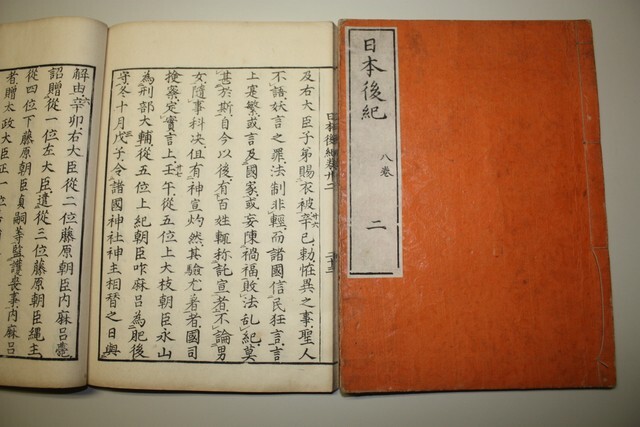 日本後紀
八卷
二
日本後紀卷廿二
及右大臣子弟賜衣被辛巳廿六勅恠異之事聖人
不語妖言之罪法制非輕而諸國信民狂言言
上寔繁或言及國家或妄陳禍福敗法乱紀莫
甚於斯自今以後有百姓輙称託宣者不論男
女隨事科决但有神宣灼然其驗尤著者國司
撿察定實言上壬午從五位上大枝朝臣永山
為刑部大輔從五位上紀朝臣咋麻呂為肥後
守冬十月戊子令諸國神社神主相替之日與
解由辛卯右大臣從二位藤原朝臣内麻呂薨
詔贈從一位左大臣遣從三位藤原朝臣縄主
從四位下藤原朝臣貞嗣等監護喪事内麻呂
者贈太政大臣正一位